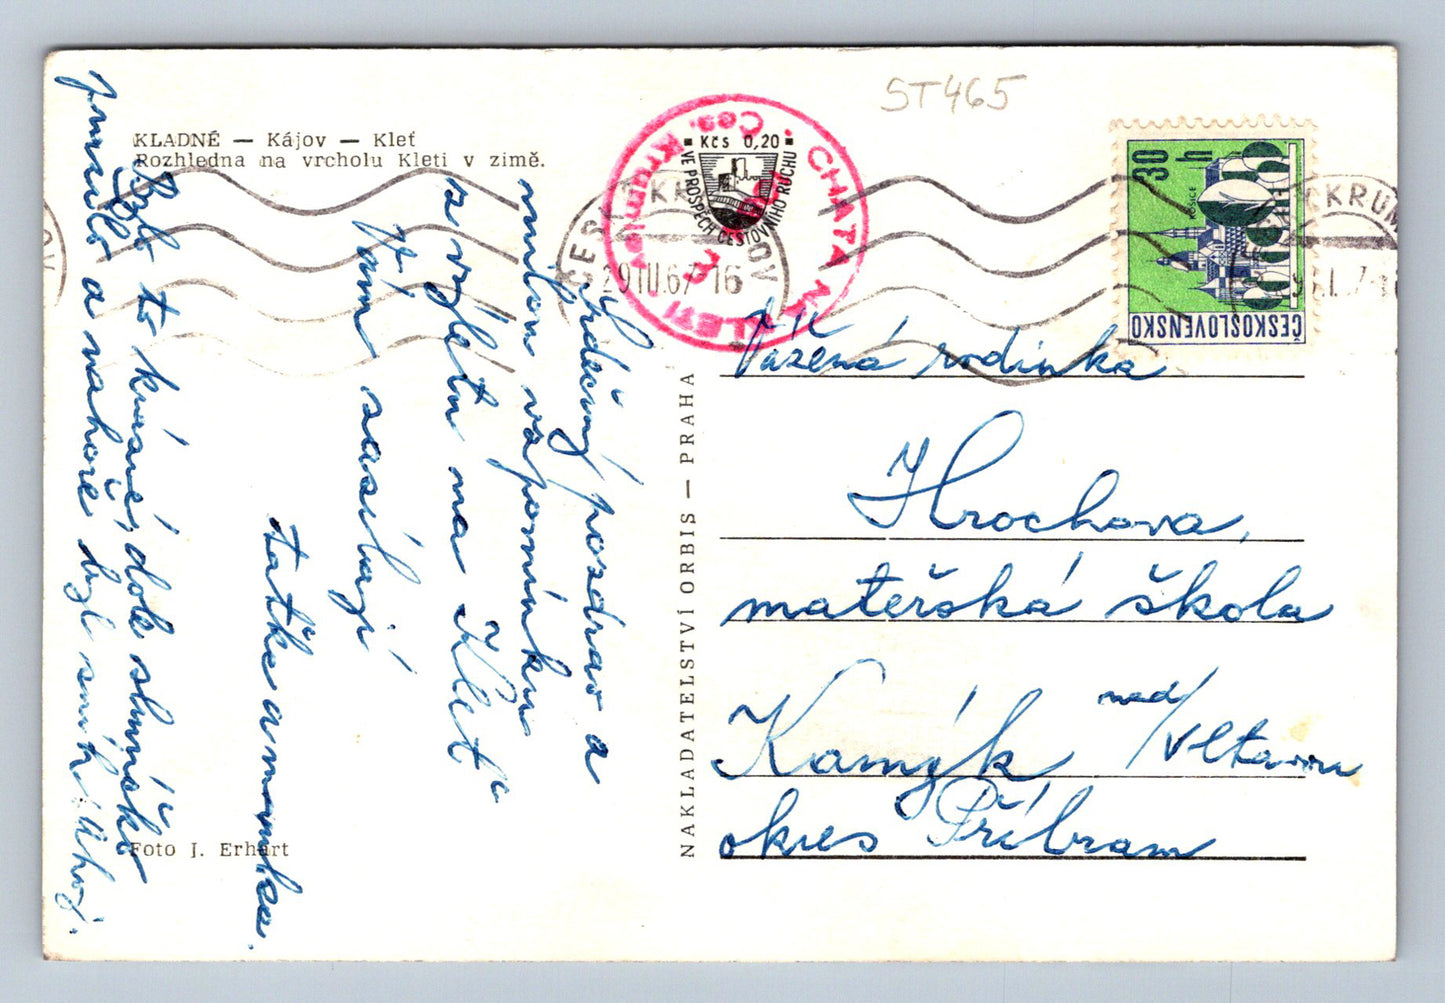 ST465
KLADNÉ — Kájov — Kleť
Rozhledna na vrcholu Kleti v zimě.
Srdečný pozdrav a
milou vzpomínku
z výletu na Kleť
Vám zasílají
taťka a mamka.
Bylo to krásné, dok sluníčko
pomálo a nahoře byl sníh. Ahoj.
Foto J. Erhart
NAKLADATELSTVÍ ORBIS — PRAHA
CHATA NA KLETI
Čes. Krumlov
Kčs 0,20
VE PROSPĚCH CESTOVNÍHO RUCHU
ČESKÝ KRUMLOV
29.III.67-16
30 h
KOŠICE
ČESKOSLOVENSKO
Vážená rodinka
Hrochova,
mateřská škola
Kamýk nad/Vltavou
okres Příbram